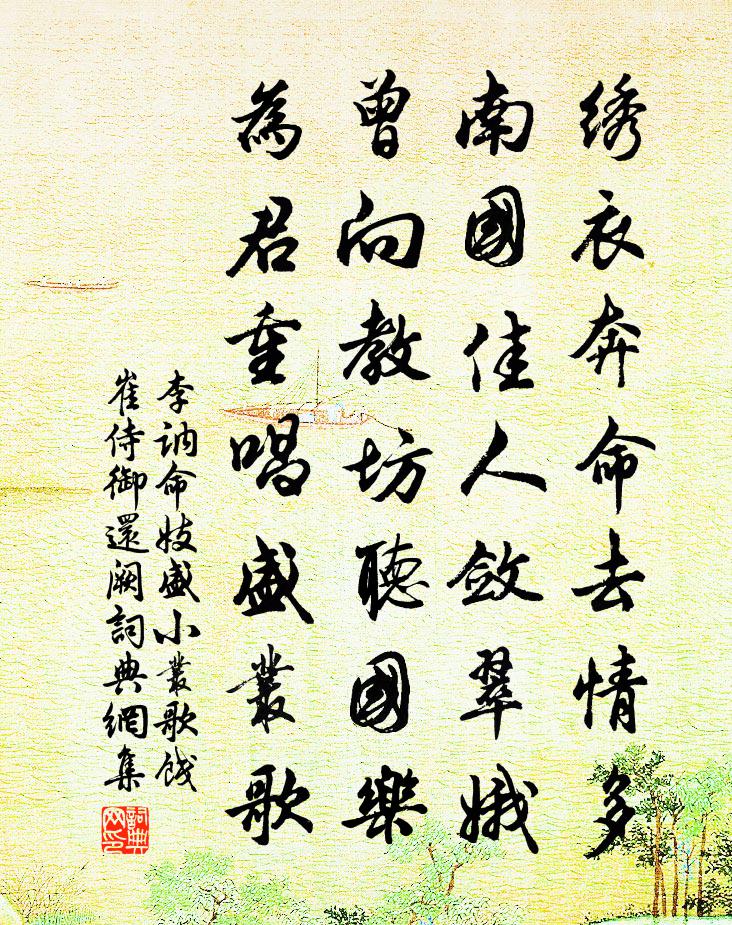 绣衣奔命去情多
南國佳人斂翠娥
曾向教坊聽國樂
為君重唱盛叢歌
李訥命妓盛小叢歌餞
崔侍御還闕詞典網集
詞典
网印